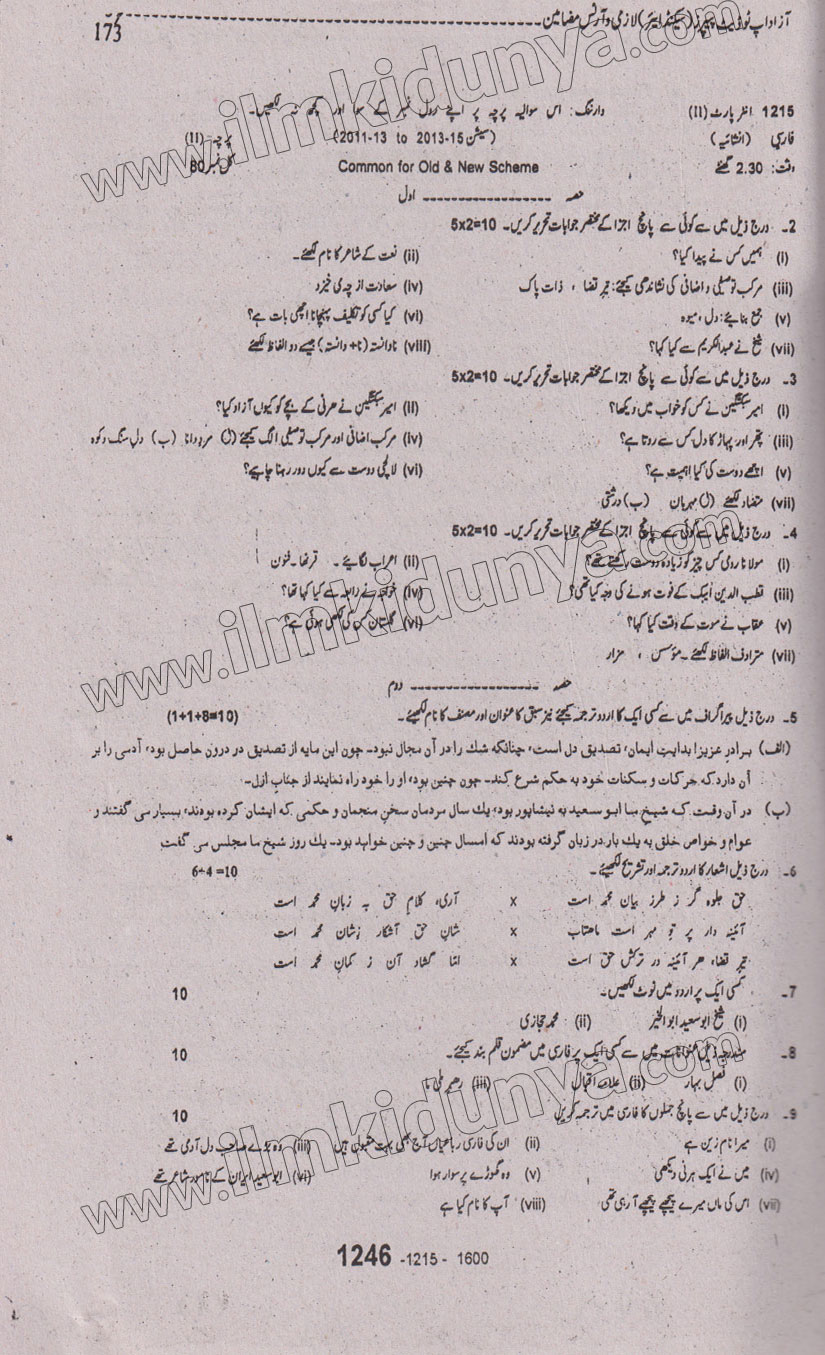 آزاد اپ ٹو ڈیٹ پیپرز (سیکنڈ ایئر) لازمی و آرٹس مضامین
173
1215 انٹر پارٹ (II) وارننگ: اس سوالیہ پرچہ پر اپنے رول نمبر کے سوا اور کچھ نہ لکھیں۔
فارسی (انشائیہ) (سیشن 2013-15 to 2011-13) پرچہ: (II)
وقت: 2.30 گھنٹے Common for Old & New Scheme کل نمبر: 80
حصہ ---------------- اول
2۔ درج ذیل میں سے کوئی سے پانچ اجزا کے مختصر جوابات تحریر کریں۔ 5x2=10
(i) ہمیں کس نے پیدا کیا؟ (ii) نعت کے شاعر کا نام لکھئے۔
(iii) مرکب توصیفی و اضافی کی نشاندھی کیجئے: تیرِ قضا ، ذات پاک (iv) سعادت از چہ می خیزد
(v) جمع بنایئے: دل ، میوہ (vi) کیا کسی کو تکلیف پہنچانا اچھی بات ہے؟
(vii) شیخ نے عبدالکریم سے کیا کہا؟ (viii) نادانستہ (نا+ دانستہ) جیسے دو الفاظ لکھئے
3۔ درج ذیل میں سے کوئی سے پانچ اجزا کے مختصر جوابات تحریر کریں۔ 5x2=10
(i) امیر سبکتگین نے کس کو خواب میں دیکھا؟ (ii) امیر سبکتگین نے ھرنی کے بچے کو کیوں آزاد کیا؟
(iii) پتھر اور پہاڑ کا دل کس سے روتا ہے؟ (iv) مرکب اضافی اور مرکب توصیفی الگ کیجئے (ل) مردِ دانا (ب) دلِ سنگ و کوہ
(v) اچھے دوست کی کیا اہمیت ہے؟ (vi) لالچی دوست سے کیوں دور رہنا چاہیے؟
(vii) متضاد لکھئے (ل) مہربان (ب) درشتی
4۔ درج ذیل میں سے کوئی سے پانچ اجزا کے مختصر جوابات تحریر کریں۔ 5x2=10
(i) مولانا رومی کس چیز کو زیادہ دوست رکھتے تھے؟ (ii) اعراب لگایئے ۔ قرنھا۔ فنون
(iii) قطب الدین ایبک کے فوت ہونے کی وجہ کیا تھی؟ (iv) خواجہ نے رابعہ سے کیا کہا تھا؟
(v) عقاب نے موت کے وقت کیا کہا؟ (vi) گلستان کس کی لکھی ہوئی ہے؟
(vii) مترادف الفاظ لکھئے۔ مؤسس ، مزار
حصہ ---------------- دوم
5۔ درج ذیل پیراگراف میں سے کسی ایک کا اردو ترجمہ کیجئے نیز سبق کا عنوان اور مصنف کا نام لکھیئے۔ (1+1+8=10)
(الف) برادر عزیز! بدایتِ ایمان، تصدیق دل است، چنانکہ شك را در آن مجال نبود۔ چون این مایہ از تصدیق در درون حاصل بود، آدمی را بر
آن دارد کہ حرکات و سکنات خود بہ حکم شرع کند۔ چون چنین بود، او را خود راہ نمایند از جنابِ ازل۔
(ب) در آن وقت کہ شیخ ما ابو سعید بہ نیشاپور بود، یك سال مردمان سخن منجمان و حکمی کہ ایشان کردہ بودند، بسیار می گفتند و
عوام و خواص خلق بہ یك بار در زبان گرفتہ بودند کہ امسال چنین و چنین خواہد بود۔ یك روز شیخ ما مجلس می گفت
6۔ درج ذیل اشعار کا اردو ترجمہ اور تشریح لکھیئے۔ 6+4 =10
حق جلوہ گر ز طرزِ بیان محمد است x آری، کلامِ حق بہ زبانِ محمد است
آئینہ دار پر تو مہر است ماھتاب x شانِ حق آشکار ز شان محمد است
تیرِ قضاء ھر آئینہ در ترکش حق است x امّا گشاد آن ز کمانِ محمد است
7۔ کسی ایک پر اردو میں نوٹ لکھیں۔ 10
(i) شیخ ابو سعید ابو الخیر (ii) محمد حجازی
8۔ مندرجہ ذیل عنوانات میں سے کسی ایک پر فارسی میں مضمون قلم بند کیجئے۔ 10
(i) فصل بہار (ii) علامہ اقبال (iii) رھبر ملی ما
9۔ درج ذیل میں سے پانچ جملوں کا فارسی میں ترجمہ کریں 10
(i) میرا نام زین ہے (ii) ان کی فارسی رباعیاں آج بھی بہت مقبول ہیں (iii) وہ بڑے صاحب دل آدمی تھے
(iv) میں نے ایک ہرنی دیکھی (v) وہ گھوڑے پر سوار ہوا (vi) ابو سعید ایران کے نامور شاعر تھے
(vii) اس کی ماں میرے پیچھے پیچھے آ رہی تھی (viii) آپ کا نام کیا ہے
1246 -1215 - 1600
www.ilmkidunya.com
www.ilmkidunya.com
www.ilmkidunya.com